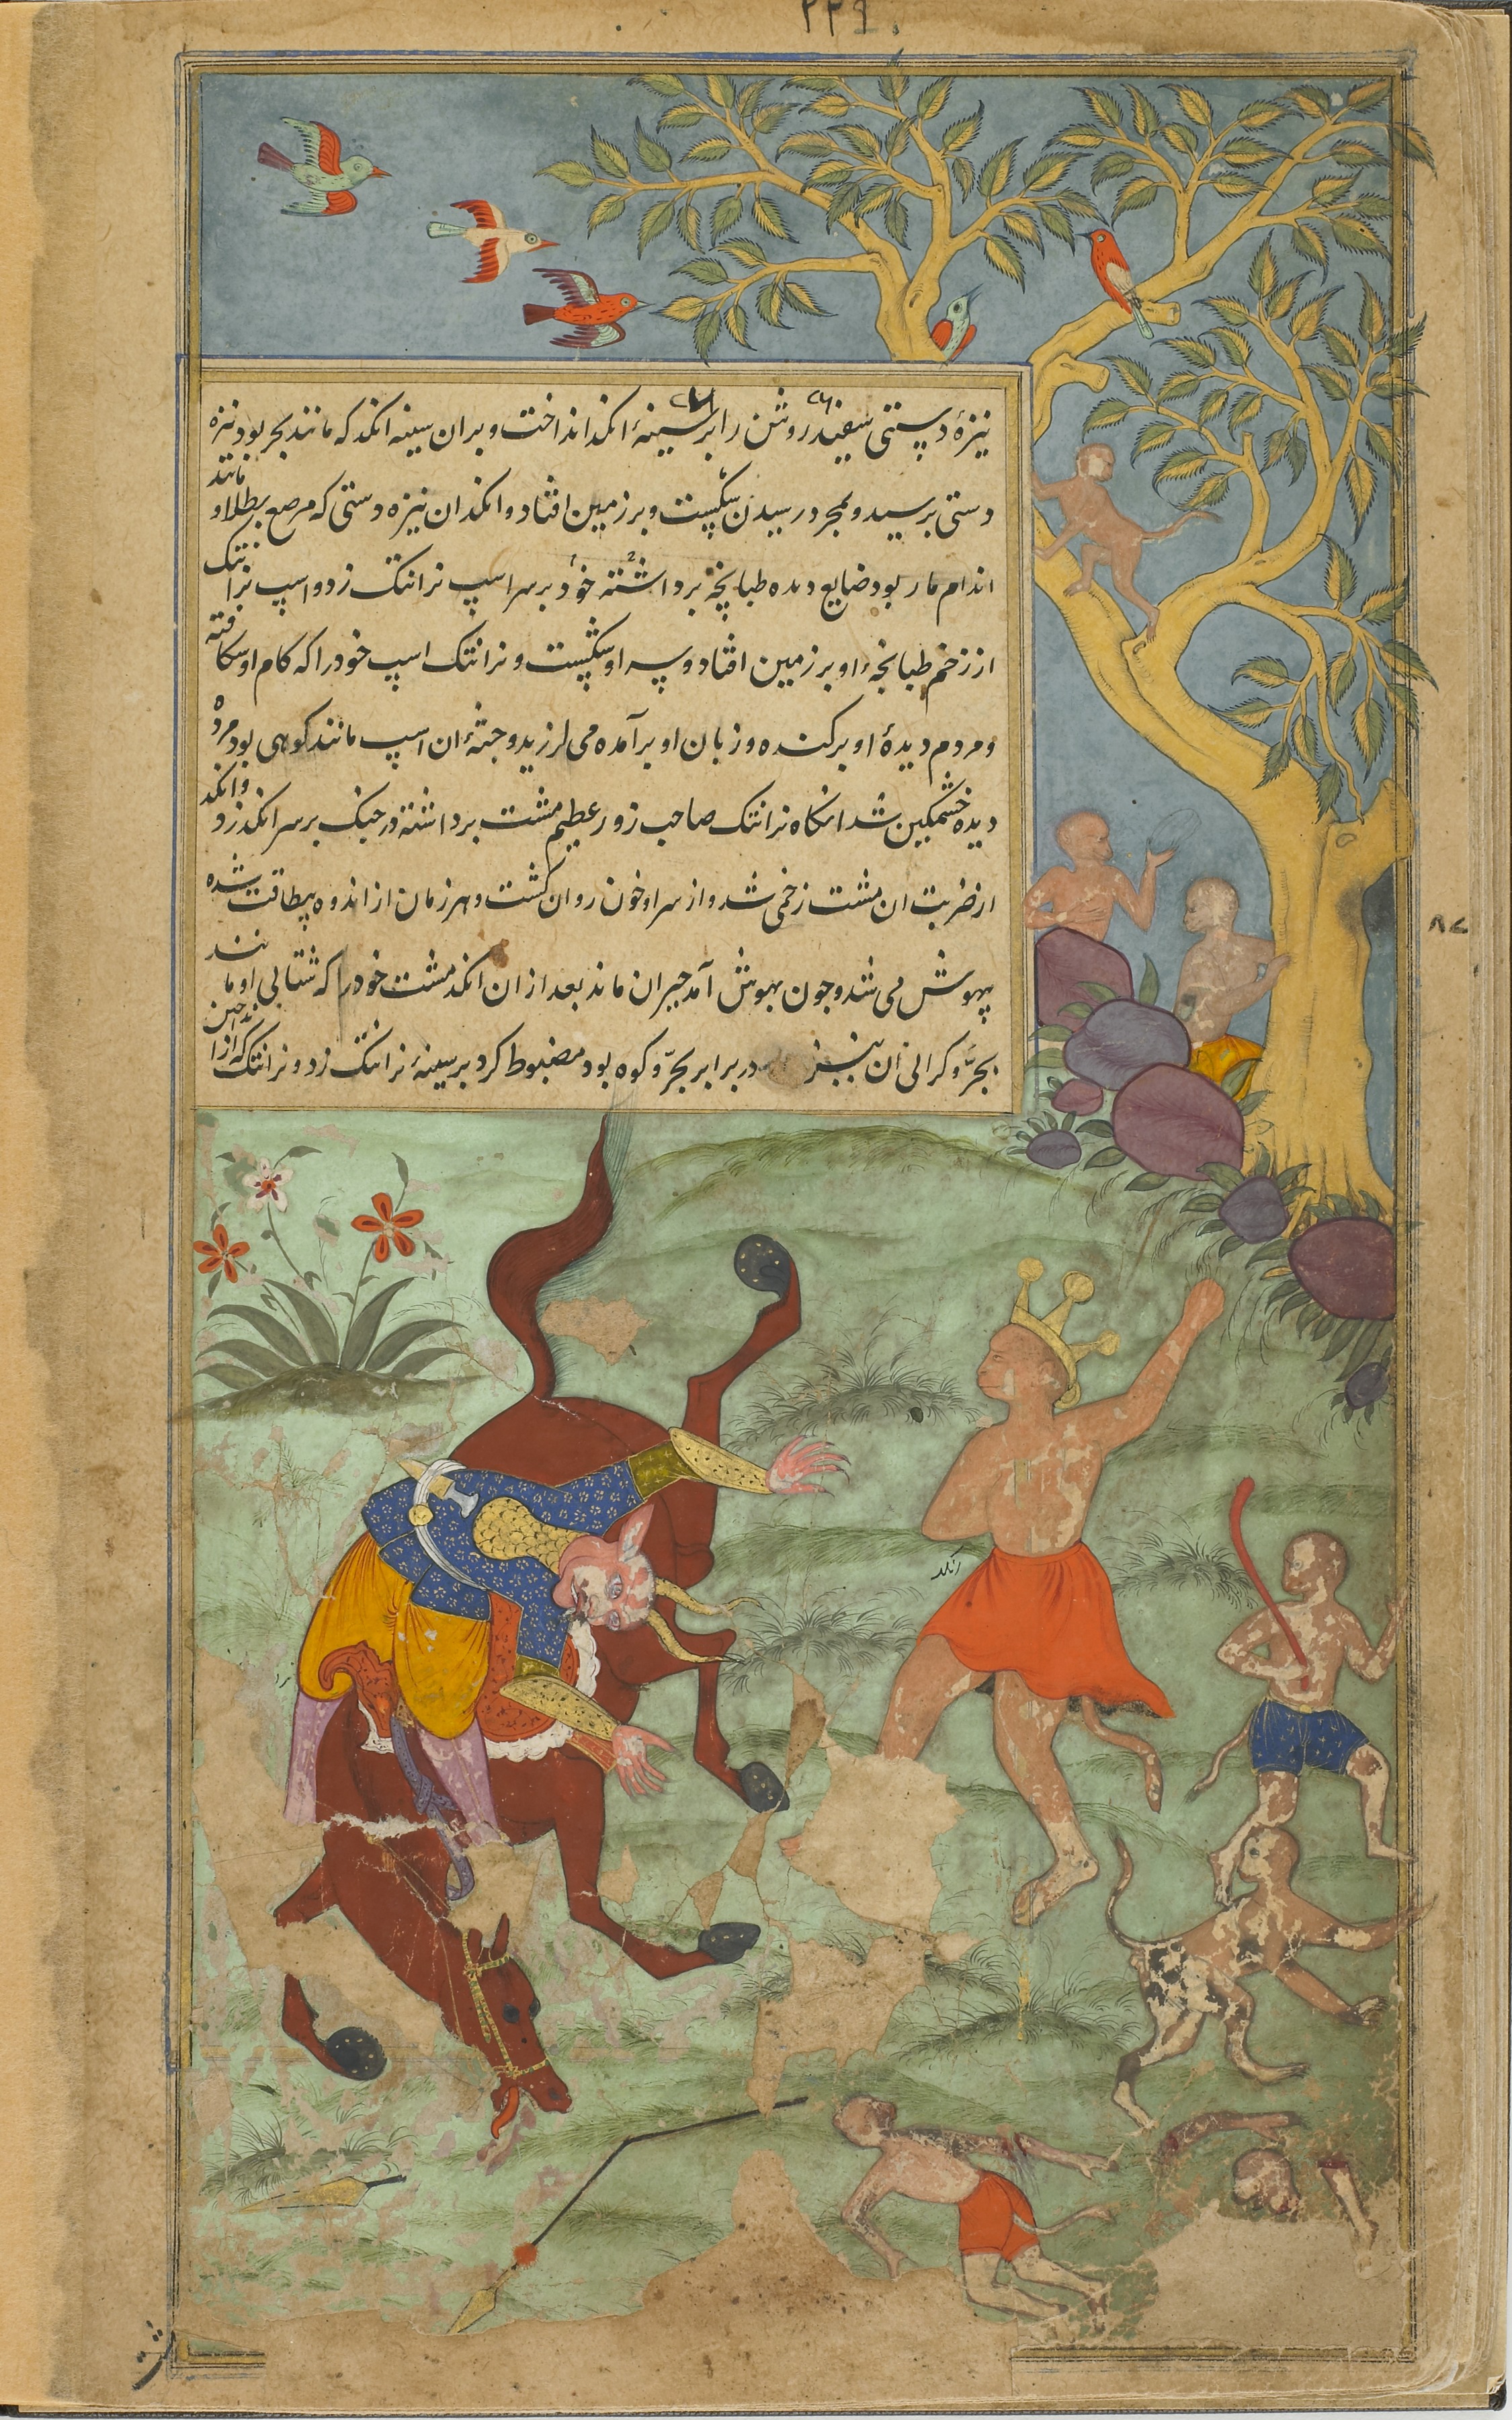 ۲۲۹
نیزهٔ دستی سفید روشن را بر سینهٔ انکد انداخت و بران سینه انکد که مانند بجر بود نیزه
دستی برسید و بمجرد رسیدن شکست و بر زمین افتاد و انکد ان نیزه دستی که مرصع بطلا و مانند
اندام مار بود ضایع دیده طبانچه برداشته خود بر سر اسپ نرانتک زد و اسپ نرانتک
از زخم طبانچهٔ او بر زمین افتاد و سر او شکست و نرانتک اسپ خود را که کام او شکافته
و مردم دیدهٔ او برکنده و زبان او برآمده می لرزید و جثهٔ ان اسپ مانند کوهی بود مرده
دیده خشمکین شد انکاه نرانتک صاحب زور عظیم مشت برداشته در جنک بر سر انکد زد و انکد
از ضربت ان مشت زخمی شد و از سر او خون روان کشت و هر زمان از اندوه بیطاقت شده
بیهوش می شد و چون بهوش آمد حیران ماند بعد از ان انکد مشت خود را که شتابی او مانند
بجر و کرانی ان نیز در برابر بجر و کوه بود مضبوط کرد بر سینهٔ نرانتک زد و نرانتک که ازان
انکد
۸۷